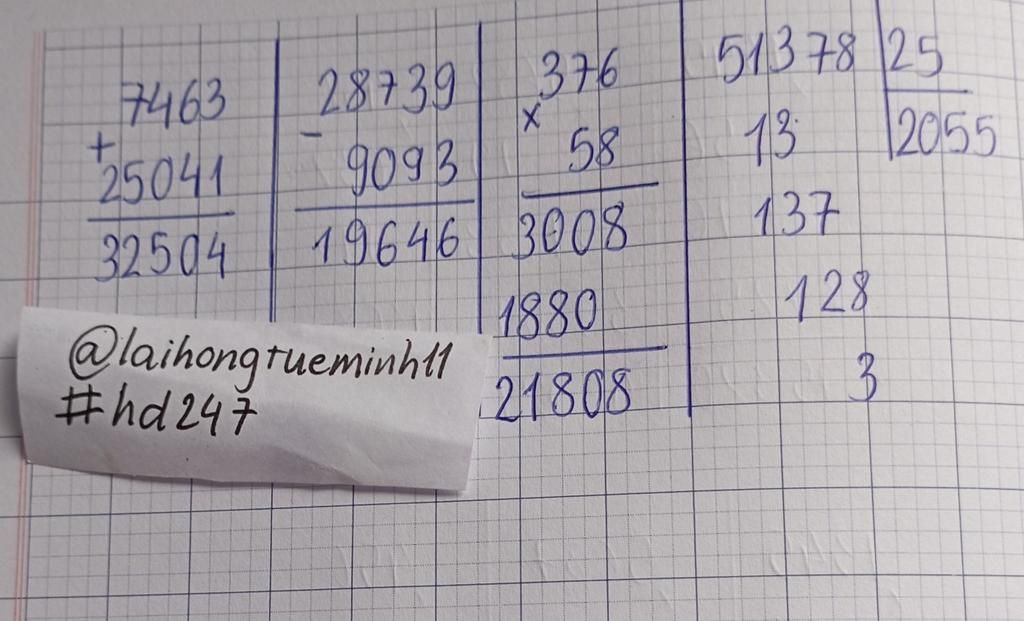 7463
+
25041
32504
28739
-
9093
19646
376
x
58
3008
1880
21808
51378 25
13 2055
137
128
3
@laihongtueminh11
#hd247